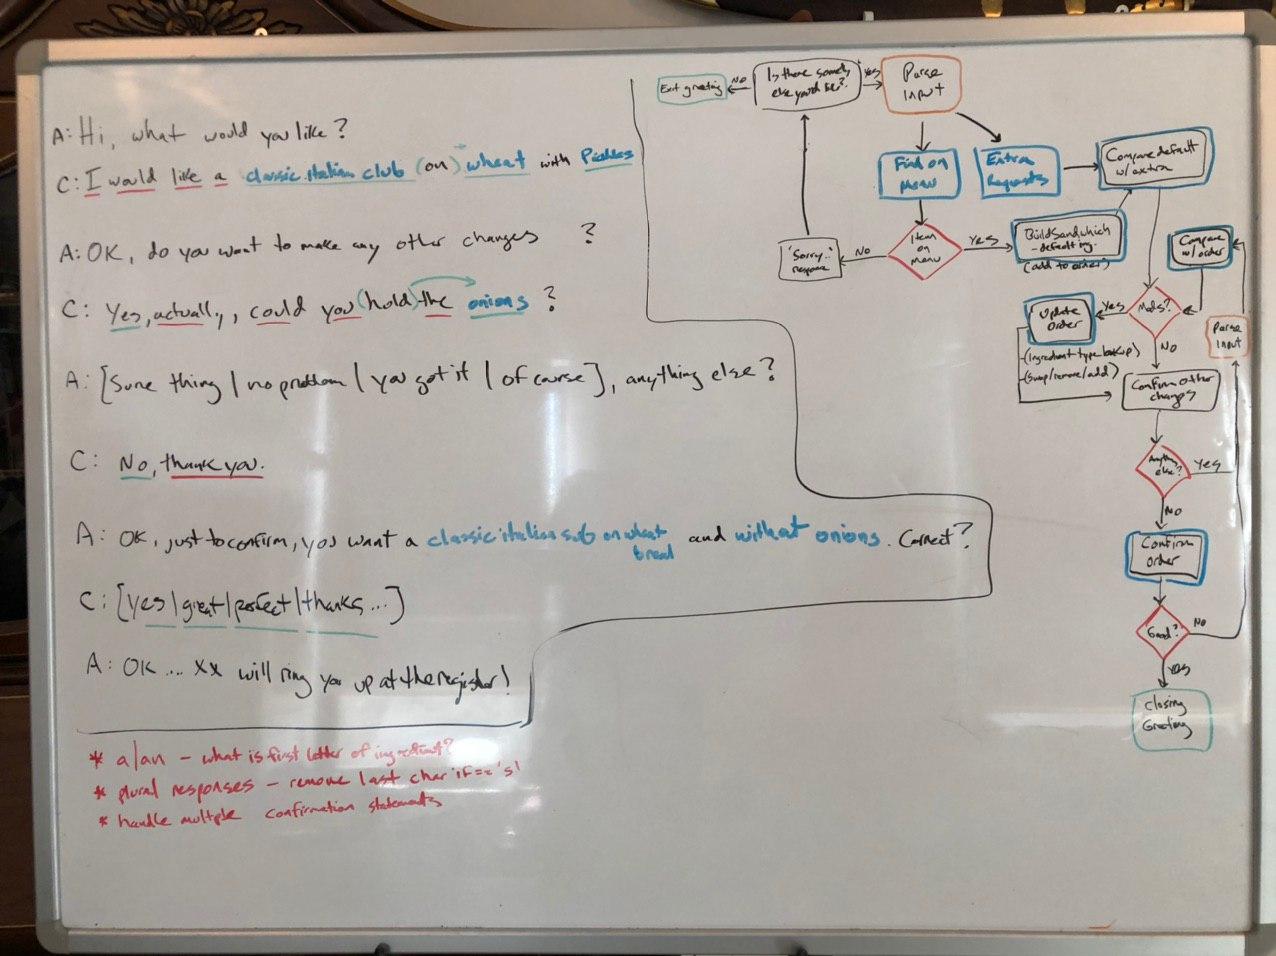 A: Hi, what would you like?
C: I would like a classic italian club (on) wheat with Pickles
A: OK, do you want to make any other changes ?
C: Yes, actually, could you (hold) the onions ?
A: [Sure thing | no problem | you got it | of course], anything else?
C: No, thank you.
A: OK, just to confirm, you want a classic italian sub on wheat
bread and without onions. Correct?
C: [yes | great | perfect | thanks ...]
A: OK ... XX will ring you up at the register!
* a/an - what is first letter of ingredient?
* plural responses - remove last char if == 's'
* handle multiple confirmation statements
Exit greeting
No
Is there
else you'd like?
Yes
Parse
Input
Find on
Menu
Extra
Requests
Compare default
w/ extra
'Sorry..'
response
No
Item
on
Menu
Yes
Build Sandwhich
- default ing.
(add to order)
Compare
w/ order
Update
Order
Yes
Mods?
Parse
Input
No
- (ingredient type lookup)
- (swap/remove/add)
Confirm other
changes
Anything
else?
Yes
No
Confirm
Order
Good?
No
Yes
Closing
Greeting